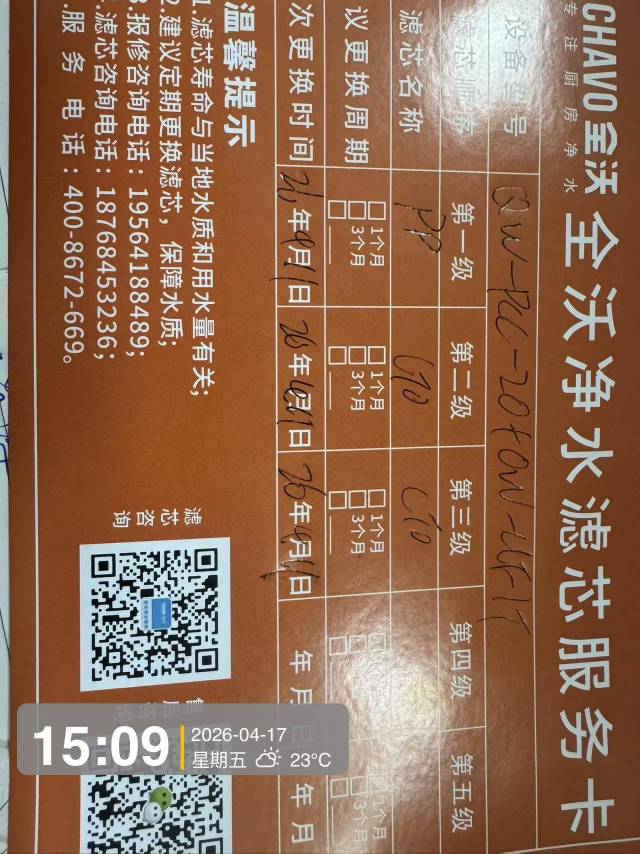 CHAVO 全沃 全沃净水滤芯服务卡
专注厨房净水
设备型号
滤芯名称 PP
第一级 第二级 第三级 第四级 第五级
议更换周期 1个月 3个月 1个月 3个月 1个月 3个月 1个月 3个月
次更换时间 年 月 日 26年 月 日 26年 月 日 年 月 日 年 月
温馨提示
1.滤芯寿命与当地水质和用水量有关;
2.建议定期更换滤芯,保障水质;
3.报修咨询电话:19564188489;
.滤芯咨询电话:18768453236;
.服务电话:400-8672-669。
滤芯咨询
售后咨询
15:09
2026-04-17
星期五 23°C